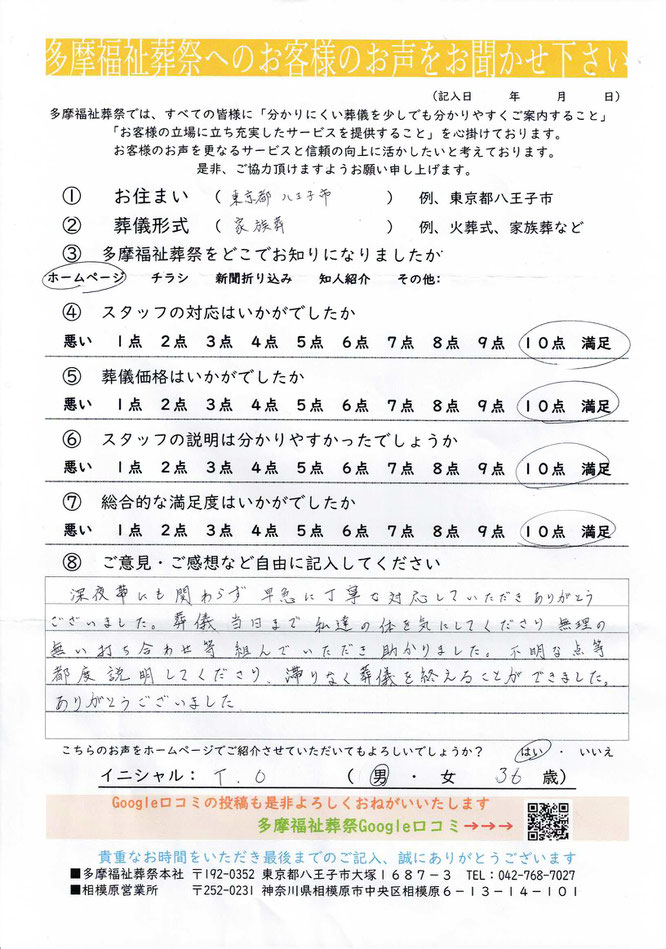 多摩福祉葬祭へのお客様のお声をお聞かせ下さい
(記入日　　年　　月　　日)
多摩福祉葬祭では、すべての皆様に「分かりにくい葬儀を少しでも分かりやすくご案内すること」
「お客様の立場に立ち充実したサービスを提供すること」を心掛けております。
お客様のお声を更なるサービスと信頼の向上に活かしたいと考えております。
是非、ご協力頂けますようお願い申し上げます。
① お住まい （東京都 八王子市） 例、東京都八王子市
② 葬儀形式 （家族葬） 例、火葬式、家族葬など
③ 多摩福祉葬祭をどこでお知りになりましたか
ホームページ チラシ 新聞折り込み 知人紹介 その他:
④ スタッフの対応はいかがでしたか
悪い 1点 2点 3点 4点 5点 6点 7点 8点 9点 10点 満足
⑤ 葬儀価格はいかがでしたか
悪い 1点 2点 3点 4点 5点 6点 7点 8点 9点 10点 満足
⑥ スタッフの説明は分かりやすかったでしょうか
悪い 1点 2点 3点 4点 5点 6点 7点 8点 9点 10点 満足
⑦ 総合的な満足度はいかがでしたか
悪い 1点 2点 3点 4点 5点 6点 7点 8点 9点 10点 満足
⑧ ご意見・ご感想など自由に記入してください
深夜帯にも関わらず 早急に丁寧な対応していただきありがとう
ございました。葬儀 当日まで 私達の体を気にしてくださり 無理の
無い打ち合わせ等 組んでいただき 助かりました。不明な点等
都度 説明してくださり、滞りなく葬儀を終えることができました。
ありがとうございました
こちらのお声をホームページでご紹介させていただいてもよろしいでしょうか？ はい ・ いいえ
イニシャル： T.O （ 男 ・ 女 36 歳）
Google口コミの投稿も是非よろしくおねがいいたします
多摩福祉葬祭Google口コミ→→→
貴重なお時間をいただき最後までのご記入、誠にありがとうございます
■多摩福祉葬祭本社 〒192-0352 東京都八王子市大塚1687-3 TEL：042-768-7027
■相模原営業所 〒252-0231 神奈川県相模原市中央区相模原6-13-14-101